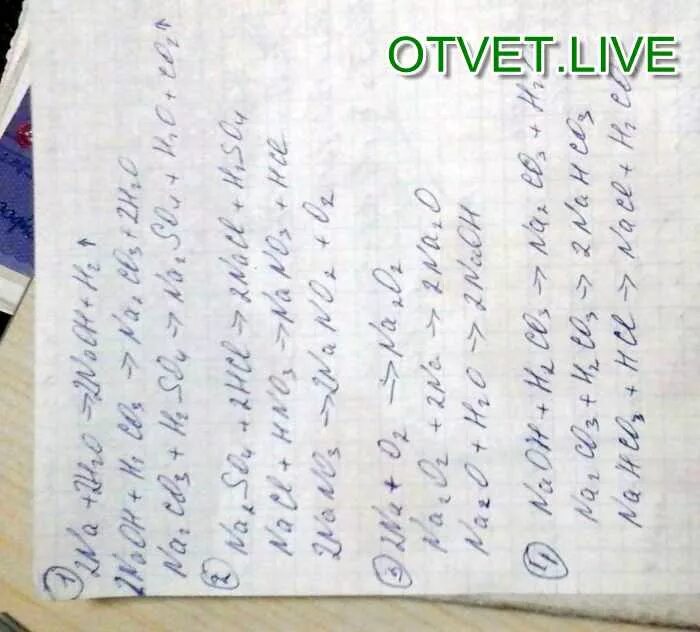 OTVET.LIVE
① 2Na + 2H₂O → 2NaOH + H₂↑
2NaOH + H₂CO₃ → Na₂CO₃ + 2H₂O
Na₂CO₃ + H₂SO₄ → Na₂SO₄ + H₂O + CO₂↑
② Na₂SO₄ + 2HCl → 2NaCl + H₂SO₄
NaCl + HNO₃ → NaNO₃ + HCl
2NaNO₃ → 2NaNO₂ + O₂
③ 2Na + O₂ → Na₂O₂
Na₂O₂ + 2Na → 2Na₂O
Na₂O + H₂O → 2NaOH
④ NaOH + H₂CO₃ → Na₂CO₃ + H₂
Na₂CO₃ + H₂CO₃ → 2NaHCO₃
NaHCO₃ + HCl → NaCl + H₂CO